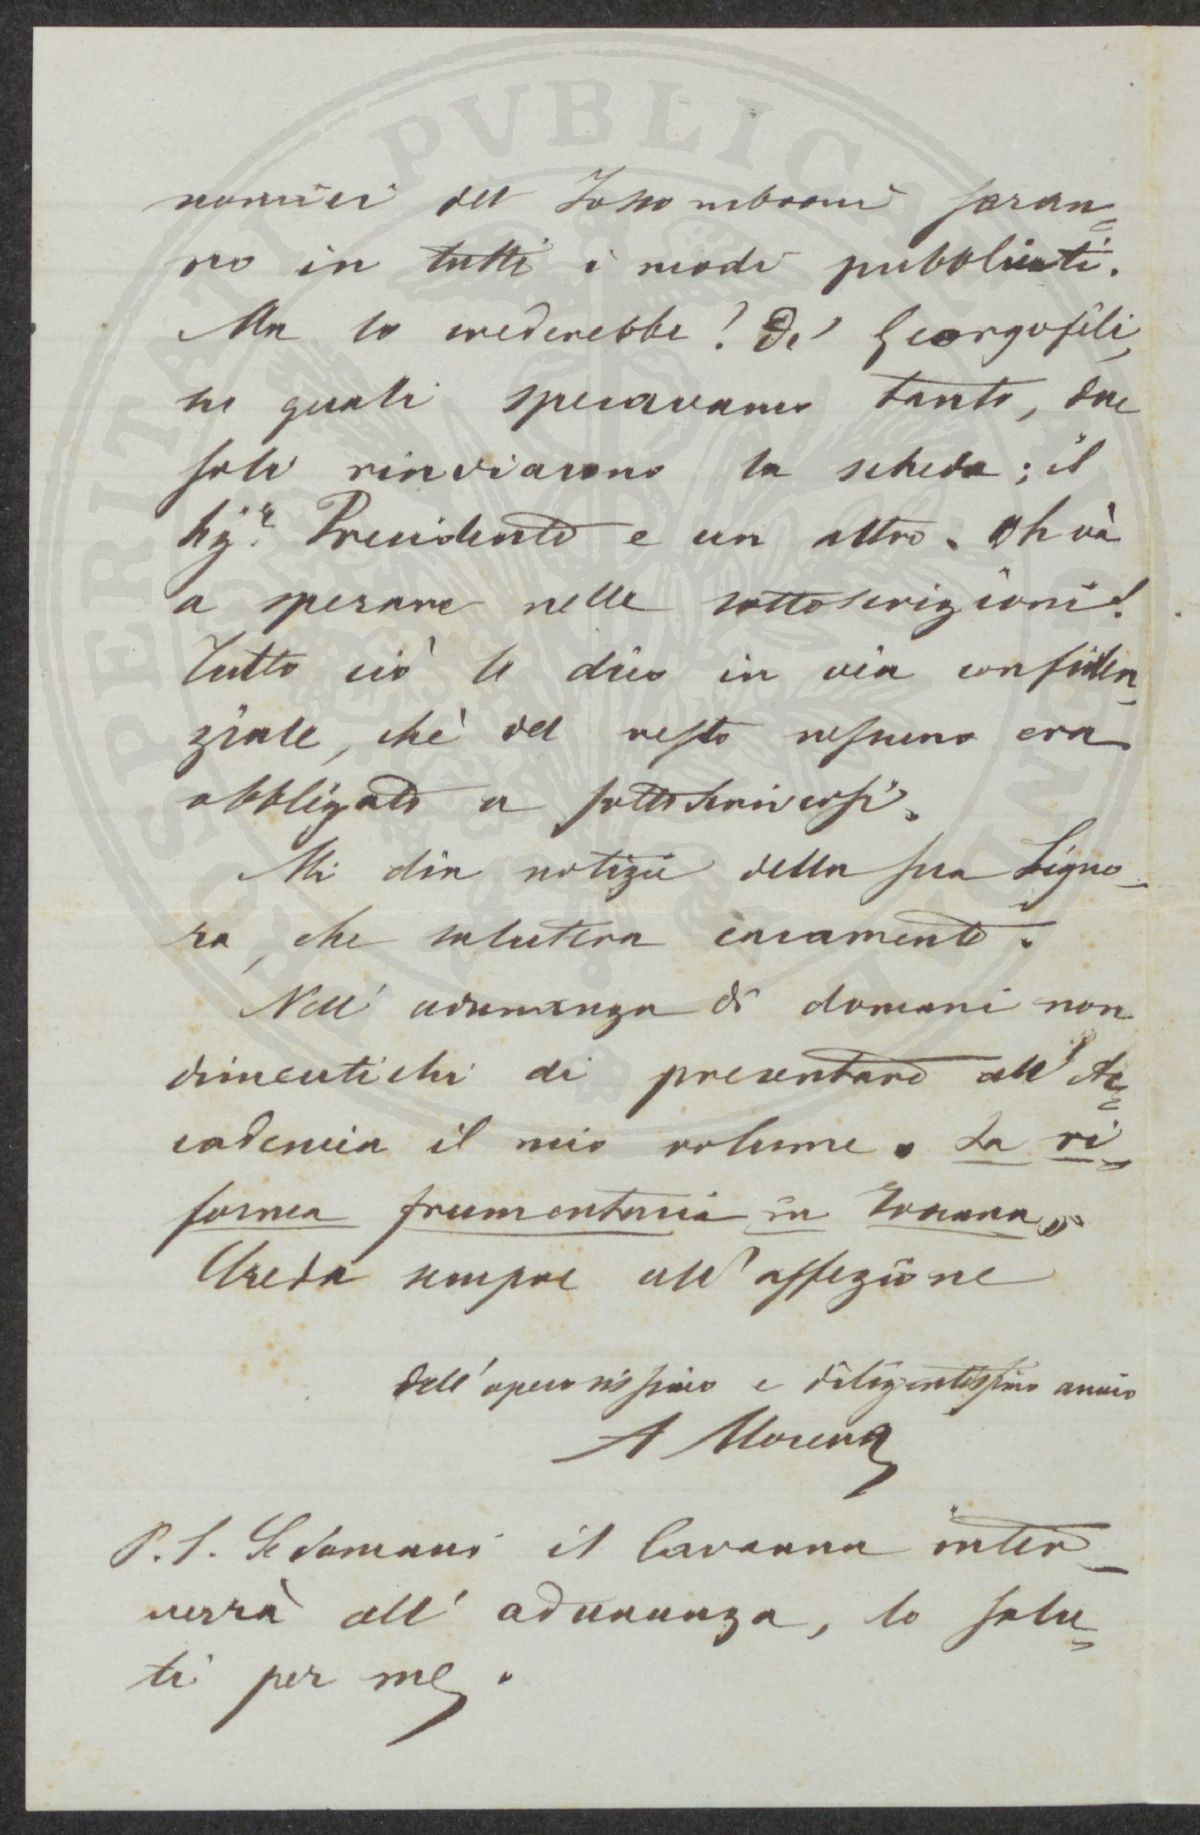 nomici del Fossombroni saran=
no in tutti i modi pubblicati.
Ma lo crederebbe! De' Georgofili,
ne quali speravamo tanto, due
soli rinviarono la scheda; il
Sig.r Presidente e un altro. Oh và
a sperare nelle sottoscrizioni!
Tutto ciò le dico in via confiden=
ziale, chè del resto nessuno era
obbligato a sottoscriversi.
Mi dia notizie della sua Signo-
ra, che saluterà caramente.
Nell' adunanza di domani non
dimentichi di presentare all' Ac=
cademia il mio volume. La ri-
forma frumentaria in Toscana.
Creda sempre all' affezione
dell' operosissimo e diligentissimo amico
A Morena
P.S. Se domani il Cavanna inter-
verrà all' adunanza, lo salu=
ti per me.
PROSPERITATI PVBLICAE